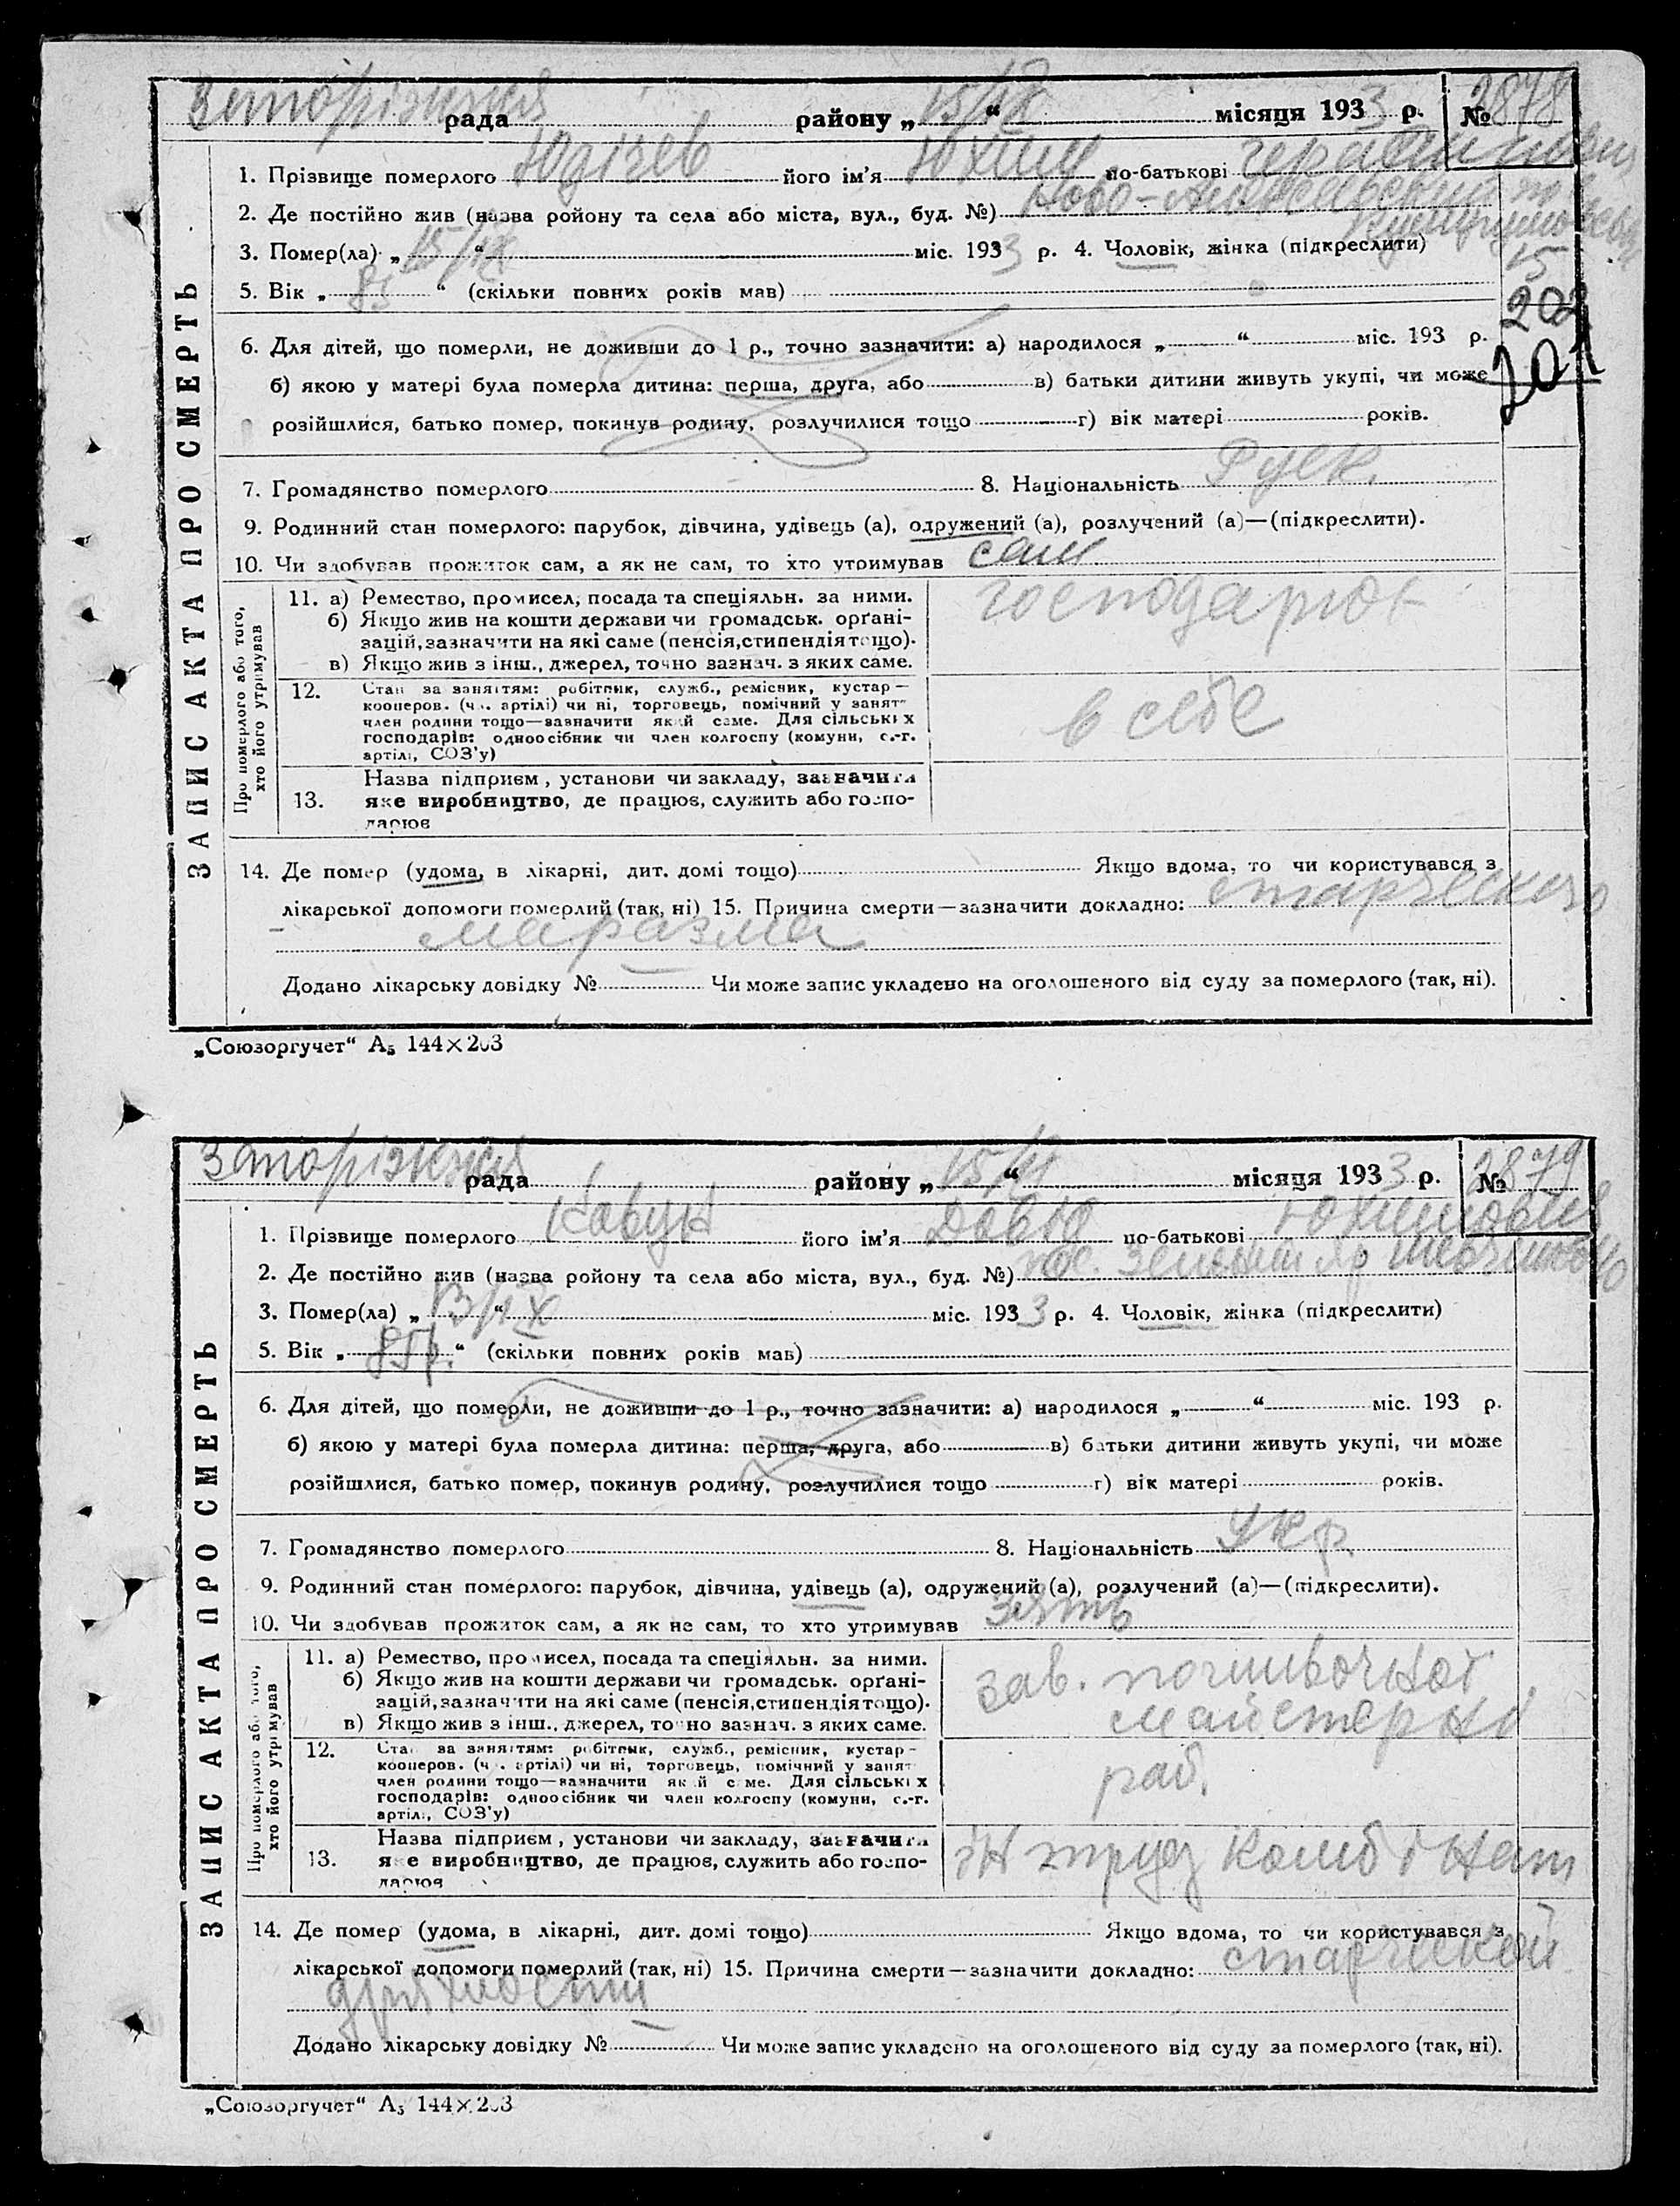 Запоріжська рада району „ 15/IX “ місяця 1933 р. № 2878
ЗАПИС АКТА ПРО СМЕРТЬ
1. Прізвище померлого Юдічев його ім’я Юхим по-батькові
2. Де постійно жив (назва ройону та села або міста, вул., буд. №)
3. Помер(ла) „ 15/IX “ міс. 1933 р. 4. Чоловік, жінка (підкреслити)
15
5. Вік „ “ (скільки повних років мав)
202
6. Для дітей, що померли, не доживши до 1 р., точно зазначити: а) народилося „ “ міс. 193 р.
201
б) якою у матері була померла дитина: перша, друга, або в) батьки дитини живуть укупі, чи може
розійшлися, батько помер, покинув родину, розлучилися тощо г) вік матері років.
7. Громадянство померлого 8. Національність Руск.
9. Родинний стан померлого: парубок, дівчина, удівець (а), одружений (а), розлучений (а)—(підкреслити).
10. Чи здобував прожиток сам, а як не сам, то хто утримував сам
Про померлого або того, хто його утримував
11. а) Ремество, промисел, посада та спеціяльн. за ними.
б) Якщо жив на кошти держави чи громадськ. орґані-
зацій, зазначити на які саме (пенсія, стипендія тощо).
в) Якщо жив з інш., джерел, точно зазнач. з яких саме.
господарює
12. Стан за заняттям: робітник, служб., ремісник, кустар—
кооперов. (чл. артілі) чи ні, торговець, помічний у занят-
член родини тощо—зазначити який саме. Для сільських
господарів: одноосібник чи член колгоспу (комуни, с.-г.
артілі, СОЗ’у)
в себе
13. Назва підприєм., установи чи закладу, зазначити
яке виробництво, де працює, служить або госпо-
дарює
14. Де помер (удома, в лікарні, дит. домі тощо) Якщо вдома, то чи користувався з
лікарської допомоги померлий (так, ні) 15. Причина смерти—зазначити докладно: старческого
маразма
Додано лікарську довідку № Чи може запис укладено на оголошеного від суду за померлого (так, ні).
„Союзоргучет“ А5 144×203
Запоріжська рада району „ 15/IX “ місяця 1933 р. № 2879
ЗАПИС АКТА ПРО СМЕРТЬ
1. Прізвище померлого Кавун його ім’я Давід по-батькові Юхимович
2. Де постійно жив (назва ройону та села або міста, вул., буд. №) пос. Зелений Яр
3. Помер(ла) „ 13/IX “ міс. 1933 р. 4. Чоловік, жінка (підкреслити)
5. Вік „ 85 р. “ (скільки повних років мав)
6. Для дітей, що померли, не доживши до 1 р., точно зазначити: а) народилося „ “ міс. 193 р.
б) якою у матері була померла дитина: перша, друга, або в) батьки дитини живуть укупі, чи може
розійшлися, батько помер, покинув родину, розлучилися тощо г) вік матері років.
7. Громадянство померлого 8. Національність Укр.
9. Родинний стан померлого: парубок, дівчина, удівець (а), одружений (а), розлучений (а)—(підкреслити).
10. Чи здобував прожиток сам, а як не сам, то хто утримував зять
Про померлого або того, хто його утримував
11. а) Ремество, промисел, посада та спеціяльн. за ними.
б) Якщо жив на кошти держави чи громадськ. орґані-
зацій, зазначити на які саме (пенсія, стипендія тощо).
в) Якщо жив з інш., джерел, точно зазнач. з яких саме.
зав. починочної
майстерні
12. Стан за заняттям: робітник, служб., ремісник, кустар-
кооперов. (чл. артілі) чи ні, торговець, помічний у занят-
член родини тощо—зазначити який саме. Для сільських
господарів: одноосібник чи член колгоспу (комуни, с.-г.
артілі, СОЗ’у)
раб.
13. Назва підприєм., установи чи закладу, зазначити
яке виробництво, де працює, служить або госпо-
дарює
інтруд комбінат
14. Де помер (удома, в лікарні, дит. домі тощо) Якщо вдома, то чи користувався з
лікарської допомоги померлий (так, ні) 15. Причина смерти—зазначити докладно: старческой
дряхлости
Додано лікарську довідку № Чи може запис укладено на оголошеного від суду за померлого (так, ні).
„Союзоргучет“ А5 144×203